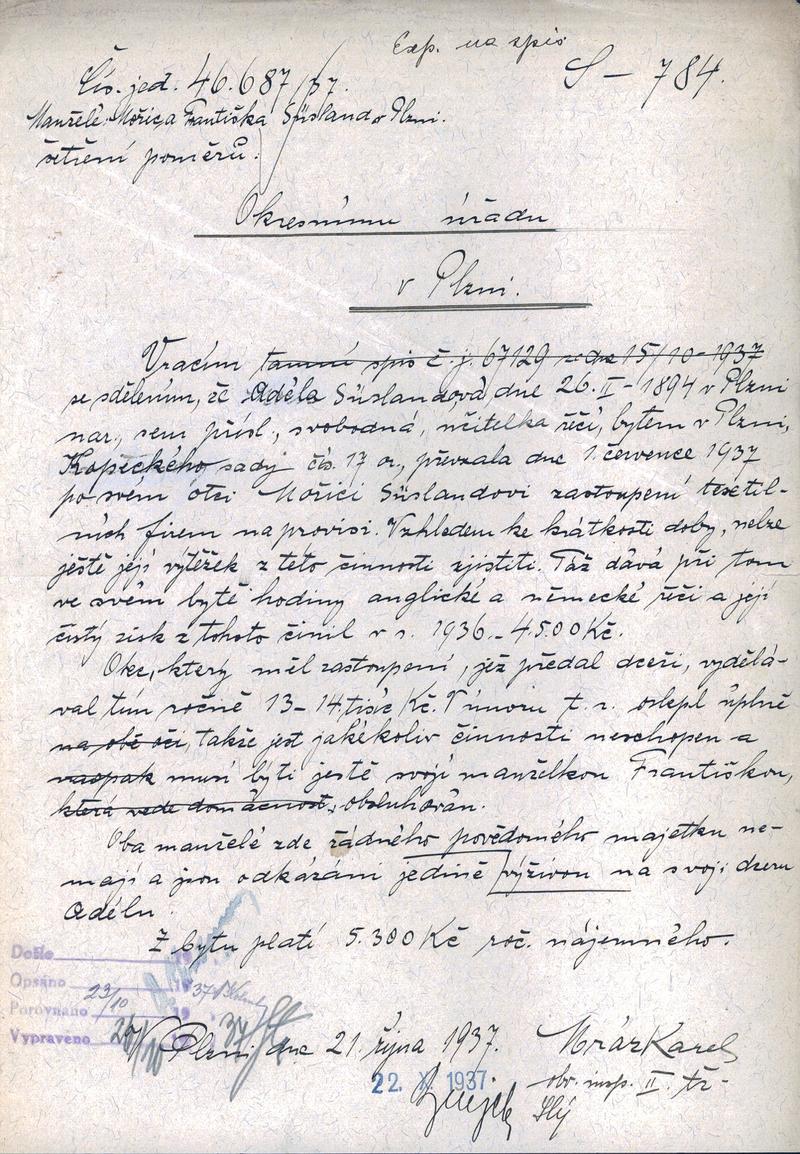 Exp. na spis
Čís. jed. 46.687/37.
S – 784.
Manželé Mořic a Františka Süsland o Plzni.
šetření poměrů.
Okresnímu úřadu
v Plzni.
Vracím tamní spis č. j. 67129 ze dne 15/10-1937
se sdělením, že Adéla Süslandová, dne 26.II-1894 v Plzni
nar., sem přísl., svobodná, učitelka řečí, bytem v Plzni,
Kopeckého sady čís. 17 or., převzala dne 1. července 1937
po svém otci Mořici Süslandovi zastoupení textil-
ních firem na provisi. Vzhledem ke krátkosti doby, nelze
ještě její výtěžek z této činnosti zjistiti. Táž dává při tom
ve svém bytě hodiny anglické a německé řeči a její
čistý zisk z tohoto činil v r. 1936.- 4.500 Kč.
Otec, který měl zastoupení, jež předal dceři, vydělá-
val tím ročně 13-14 tisíc Kč. V únoru t. r. oslepl úplně
na obě oči, takže jest jakékoliv činnosti neschopen a
naopak musí býti ještě svojí manželkou Františkou,
která vede domácnost, obsluhován.
Oba manželé zde žádného povědomého majetku ne-
mají a jsou odkázáni jedině výživou na svoji dceru
Adélu.
Z bytu platí 5.300 Kč roč. nájemného.
Došlo 19
Opsáno 1937
Porovnáno 23/10 19
Vypraveno 37
V Plzni dne 21. října 1937.
Mráz Karel
22. X. 1937
obv. insp. II. tř.